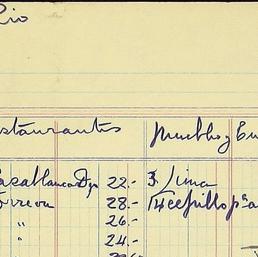 Rio
staurantes Muebles y En
asablanca Dp 22.- 3 Lima
orreon 28.- 14 cepillo pa
" 26.-
" 24.-